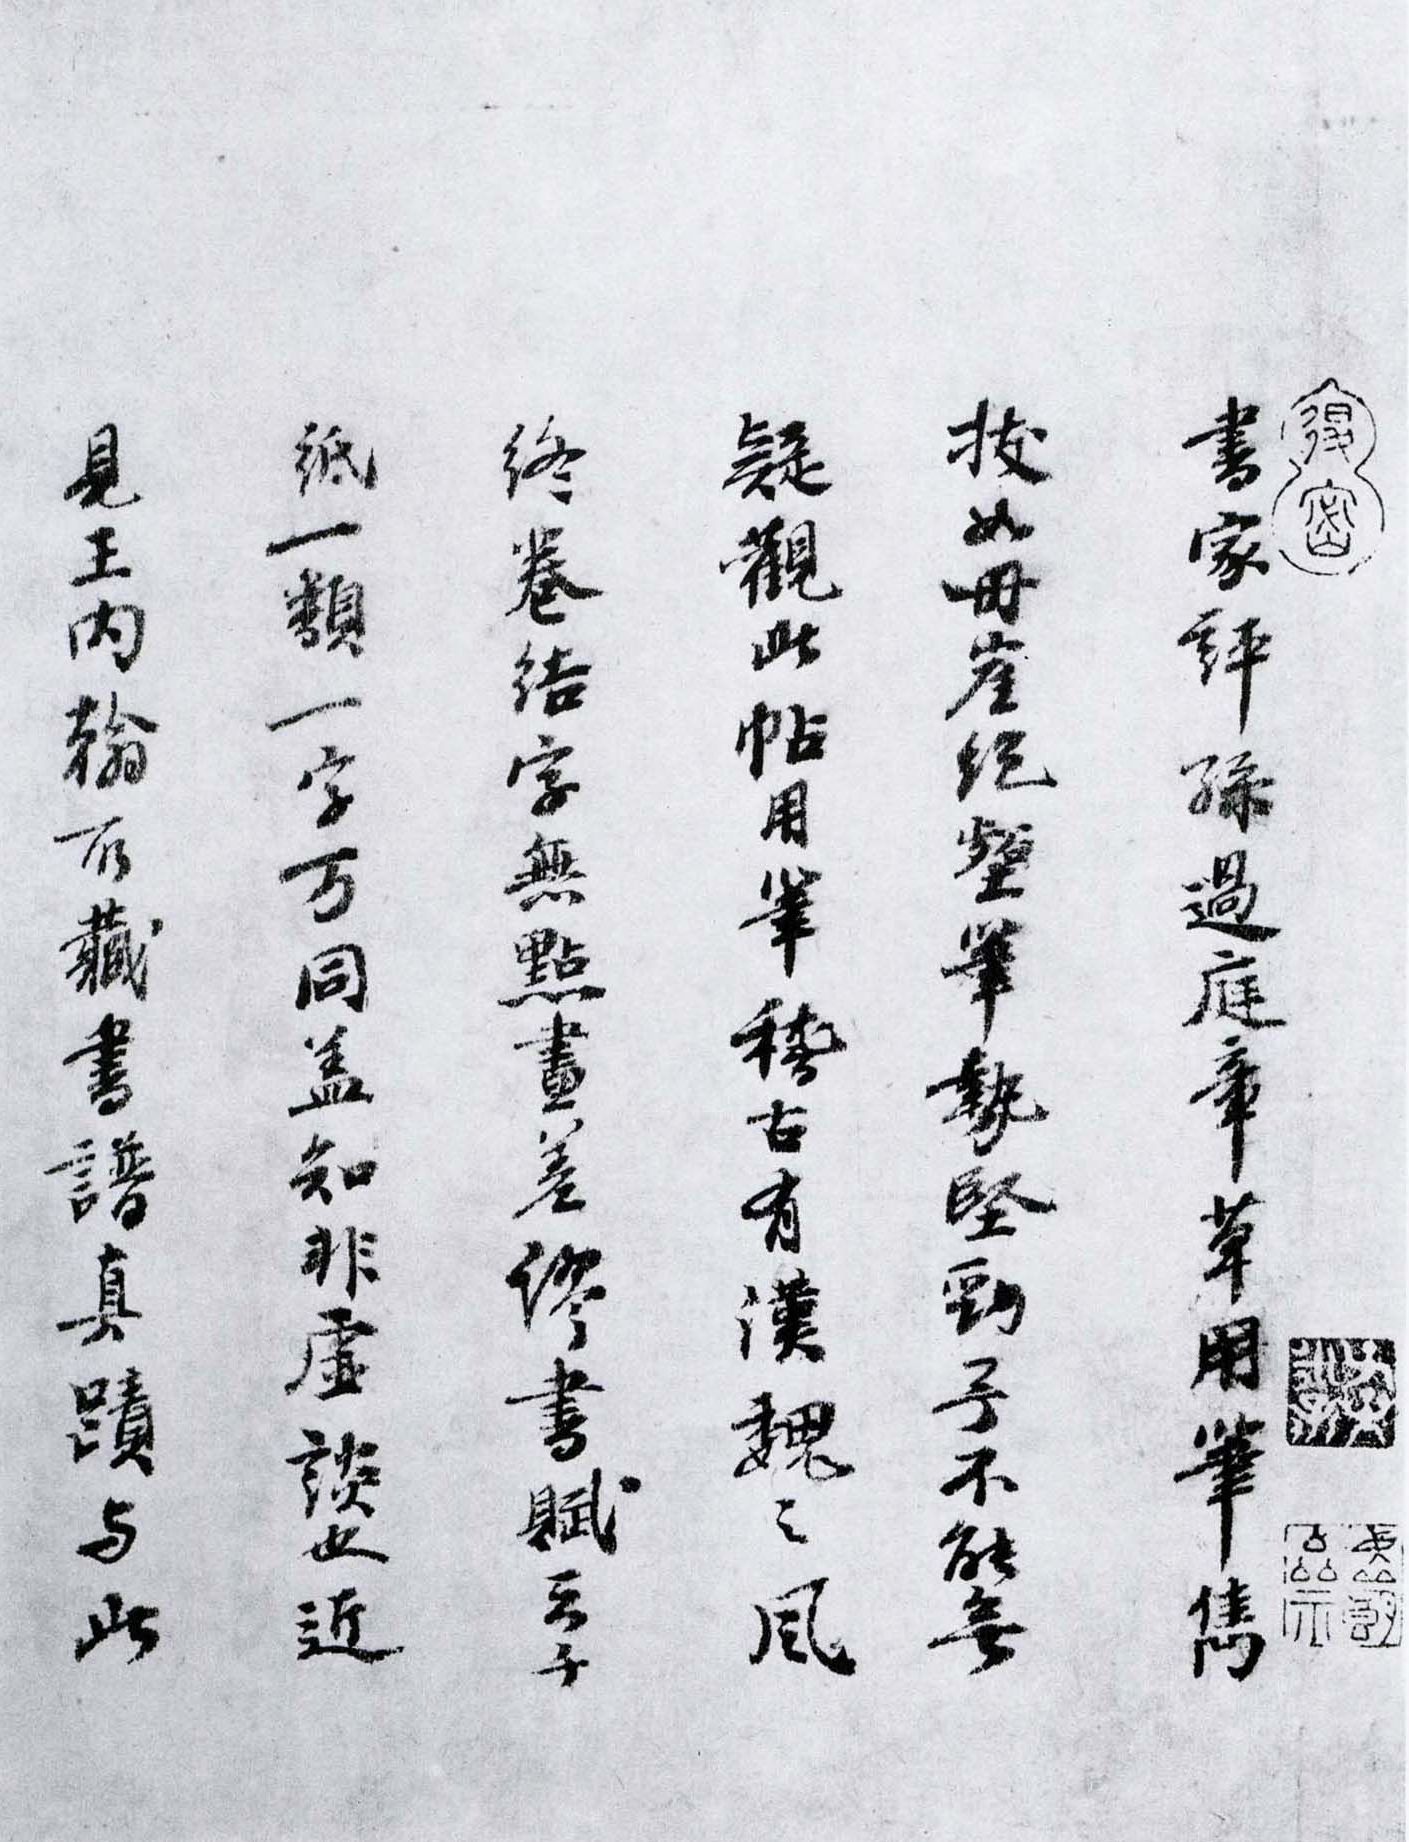 書家評孫過庭章草用筆雋
拔如丹崖絕壑筆勢堅勁予不能無
疑觀此帖用筆稽古有漢魏之風
終卷結字無點畫差謬書賦云千
紙一類一字万同盖知非虛談也近
見王內翰所藏書譜真蹟与此